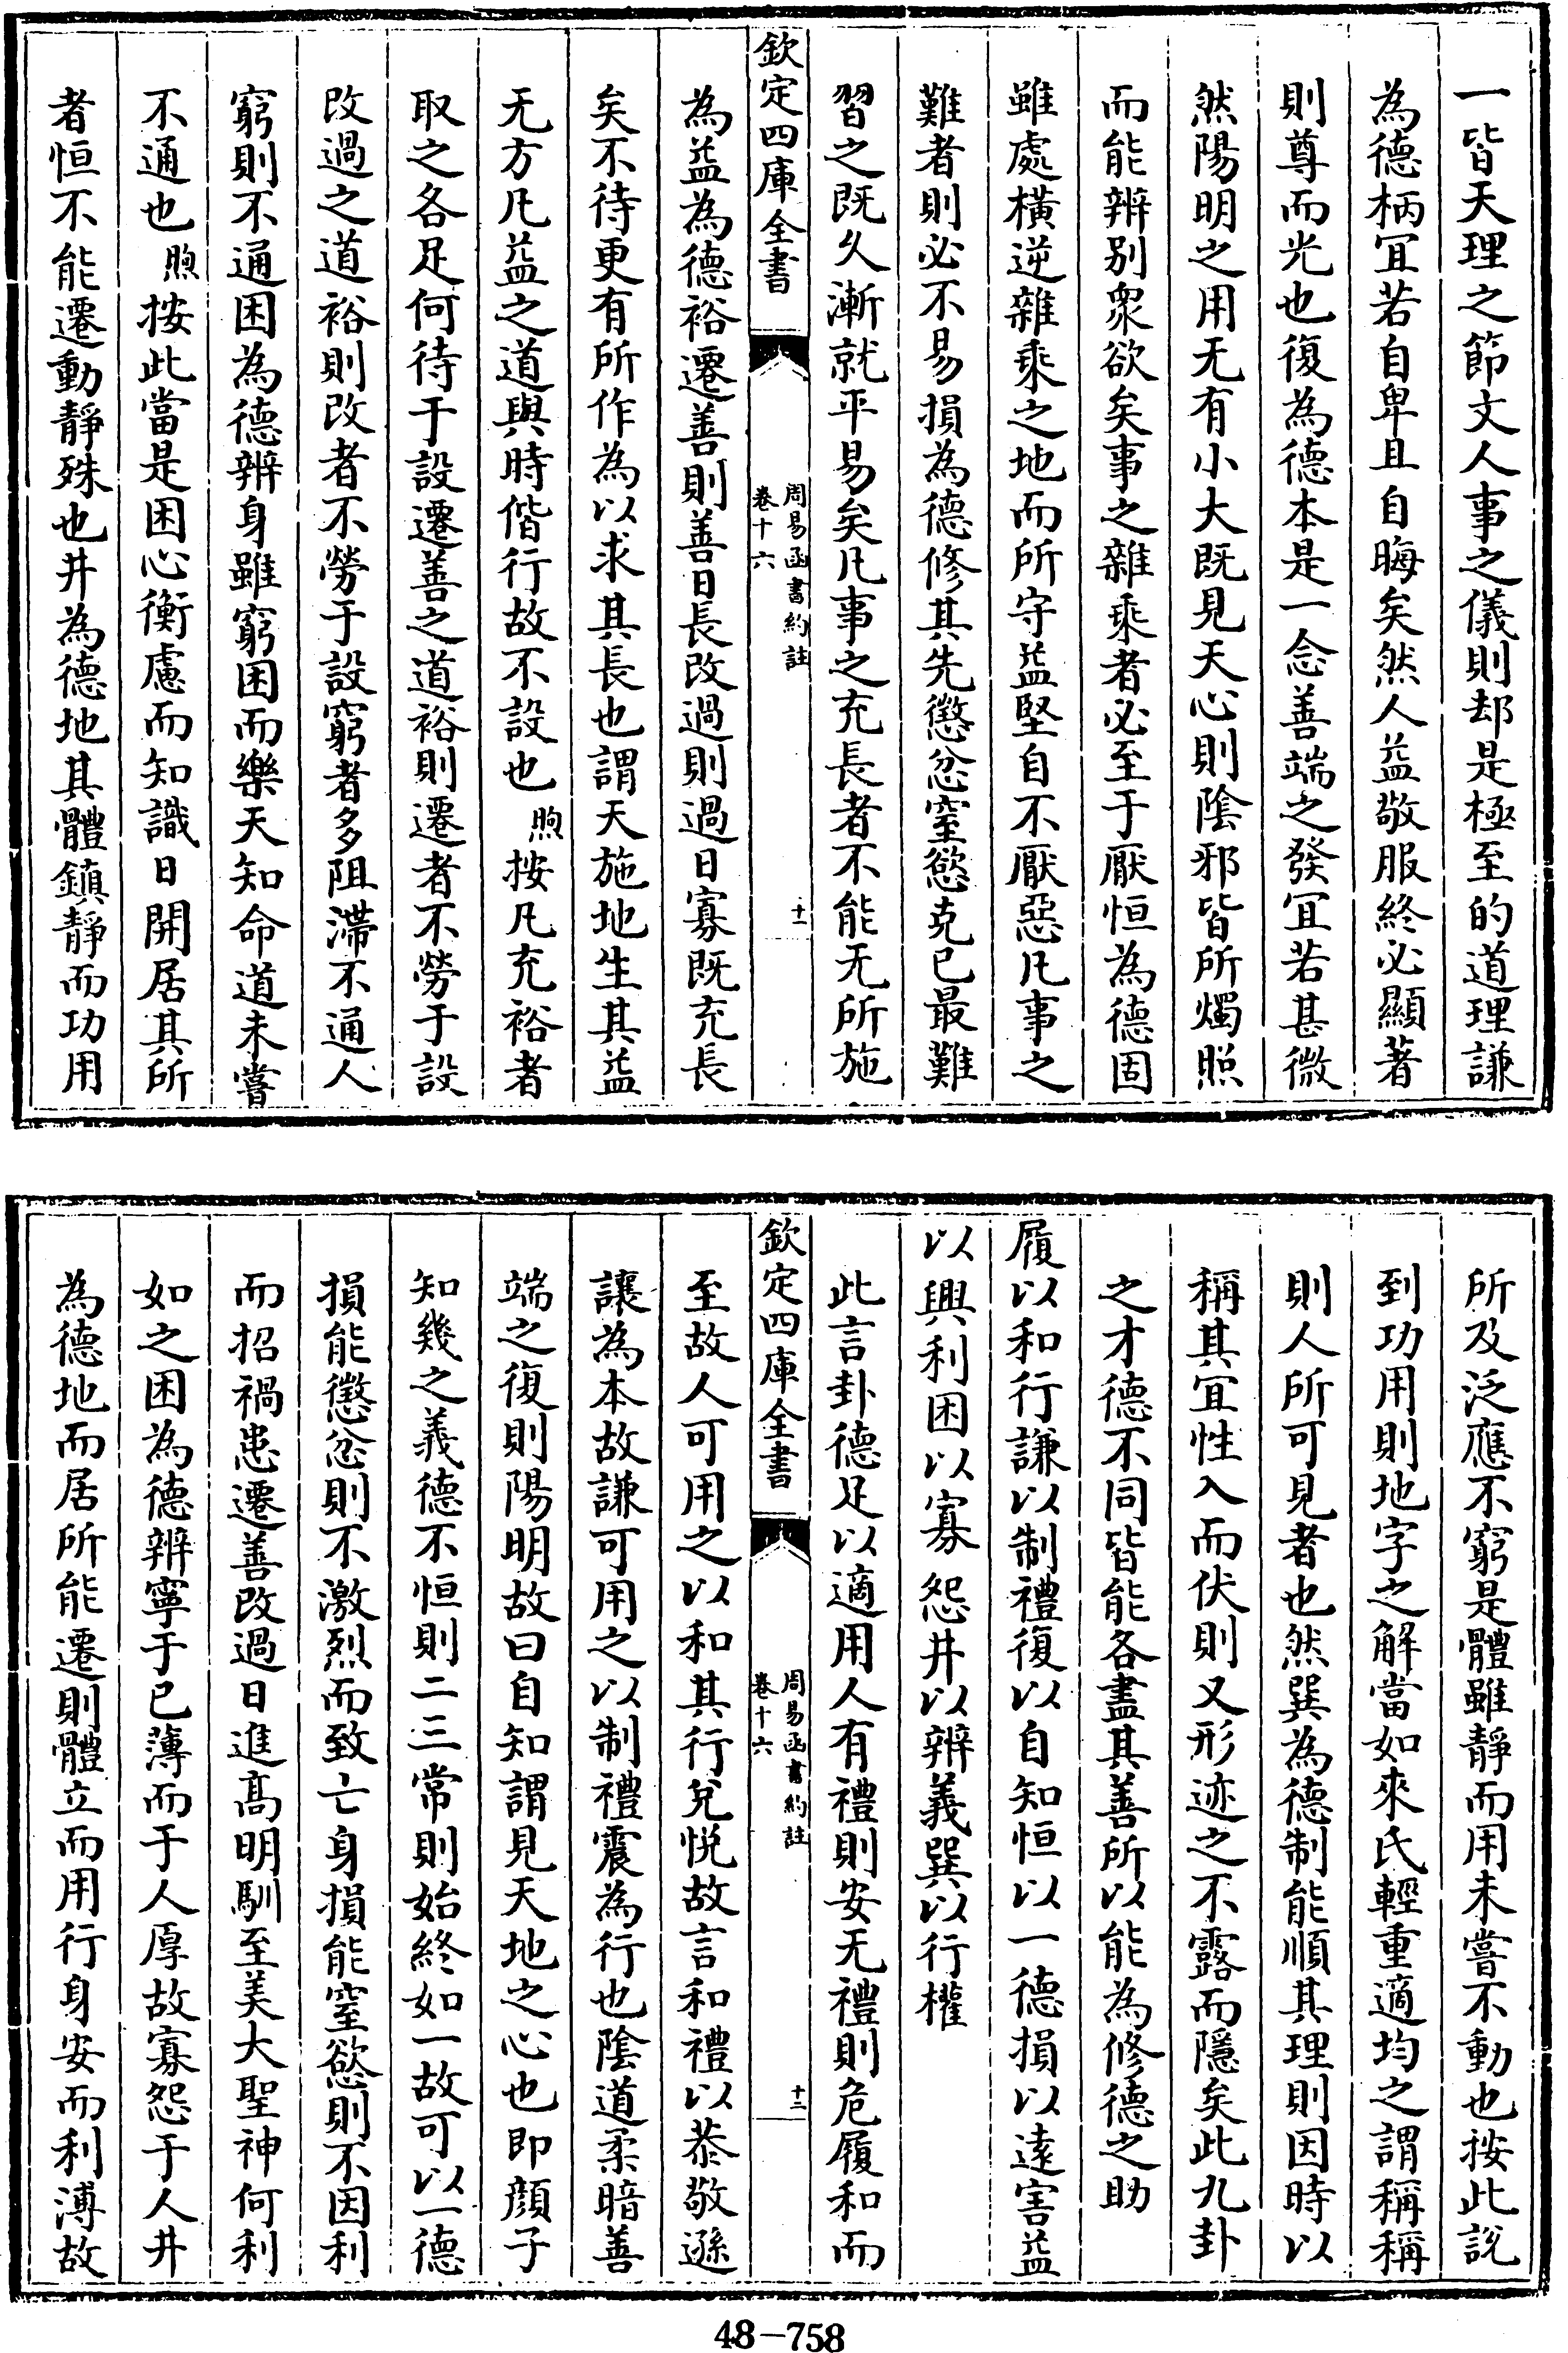 一皆天理之節文人事之儀則却是極至的道理謙
為德柄宜若自卑且自晦矣然人益敬服終必顯著
則尊而光也復為德本是一念善端之發宜若甚微
然陽明之用无有小大既見天心則陰邪皆所燭照
而能辨别衆欲矣事之雜乘者必至于厭恒為德固
雖處橫逆雜乘之地而所守益堅自不厭惡凡事之
難者則必不易損為德修其先懲忿窒慾克已最難
習之既久漸就平易矣凡事之充長者不能无所施
欽定四庫全書
周易函書約註
卷十六
十一
為益為德裕遷善則善日長改過則過日寡既充長
矣不待更有所作為以求其長也謂天施地生其益
无方凡益之道與時偕行故不設也煦按凡充裕者
取之各足何待于設遷善之道裕則遷者不勞于設
改過之道裕則改者不勞于設窮者多阻滯不通人
窮則不通困為德辨身雖窮困而樂天知命道未嘗
不通也煦按此當是困心衡慮而知識日開居其所
者恒不能遷動靜殊也井為德地其體鎮靜而功用
所及泛應不窮是體雖靜而用未嘗不動也按此說
到功用則地字之解當如來氏輕重適均之謂稱稱
則人所可見者也然巽為德制能順其理則因時以
稱其宜性入而伏則又形迹之不露而隱矣此九卦
之才德不同皆能各盡其善所以能為修德之助
履以和行謙以制禮復以自知恒以一德損以遠害益
以興利困以寡怨井以辨義巽以行權
此言卦德足以適用人有禮則安无禮則危履和而
欽定四庫全書
周易函書約註
卷十六
十二
至故人可用之以和其行兌悅故言和禮以恭敬遜
讓為本故謙可用之以制禮震為行也陰道柔暗善
端之復則陽明故曰自知謂見天地之心也即顔子
知幾之義德不恒則二三常則始終如一故可以一德
損能懲忿則不激烈而致亡身損能窒慾則不因利
而招禍患遷善改過日進高明馴至美大聖神何利
如之困為德辨寧于已薄而于人厚故寡怨于人井
為德地而居所能遷則體立而用行身安而利溥故
48-758